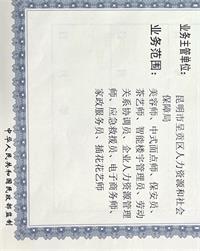 业务主管单位：
昆明市呈贡区人力资源和社会
保障局
业务范围：
美容师、中式面点师、保安员、
茶艺师、智能楼宇管理员、劳动
关系协调员、企业人力资源管理
师、应急救援员、电子商务师、
家政服务员、插花花艺师
中华人民共和国民政部监制